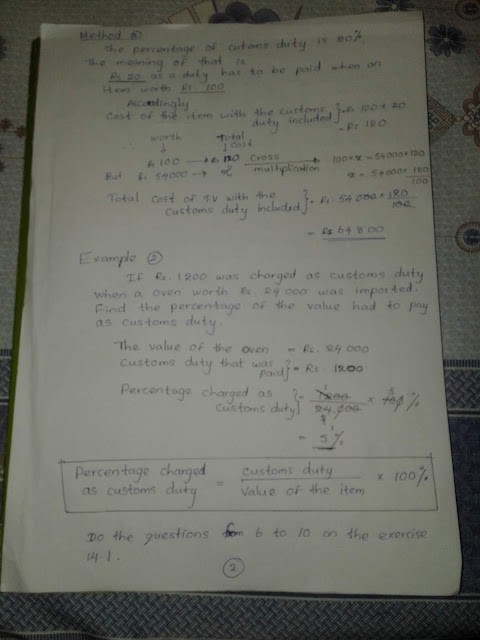 Method ②
The percentage of cutoms duty is 20%.
The meaning of that is
Rs 20 as a duty has to be paid when an
item worth Rs. 100
Accordingly
Cost of the item with the customs duty included } = Rs 100 + 20
= Rs 120
worth Total cost
↓ ↓
Rs 100 → Rs 120 cross multiplication → 100 × x = 54000 × 120
But Rs 54000 → x x = 54000 × 120/100
Total cost of T.V with the customs duty included } = Rs. 54 000 × 120/100
= Rs. 64 800
Example ②
If Rs. 1200 was charged as customs duty
when a oven worth Rs. 24 000 was imported.
Find the percentage of the value had to pay
as customs duty.
The value of the oven = Rs. 24 000
Customs duty that was paid } = Rs. 1200
Percentage charged as customs duty } = 1200/24 000 × 100 %
= 5 %
Percentage charged as customs duty = customs duty / Value of the item × 100%
Do the questions from 6 to 10 on the exercise
14.1.
②